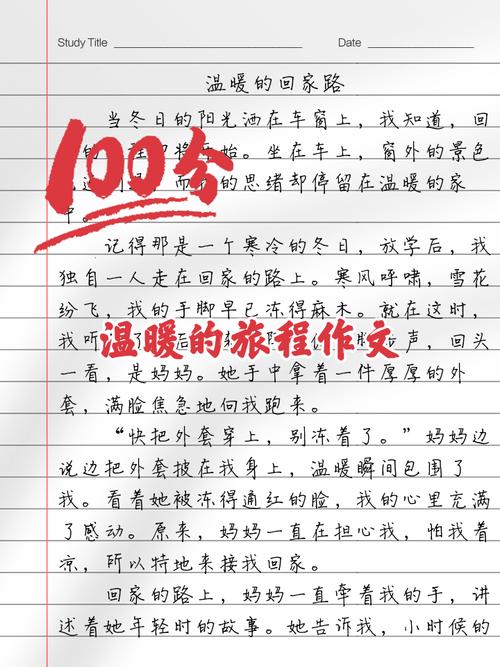 Study Title
Date
温暖的回家路
当冬日的阳光洒在车窗上，我知道，回
100分
始。坐在车上，窗外的景色
的思绪却停留在温暖的家
中。
记得那是一个寒冷的冬日，放学后，我
独自一人走在回家的路上。寒风呼啸，雪花
纷飞，我的手脚早已冻得麻木。就在这时，
我听
温暖的旅程作文
声，回头
一看，是妈妈。她手中拿着一件厚厚的外
套，满脸焦急地向我跑来。
“快把外套穿上，别冻着了。”妈妈边
说边把外套披在我身上，温暖瞬间包围了
我。看着她被冻得通红的脸，我的心里充满
了感动。原来，妈妈一直在担心我，怕我着
凉，所以特地来接我回家。
回家的路上，妈妈一直牵着我的手，讲
述着她年轻时的故事。她告诉我，小时候的